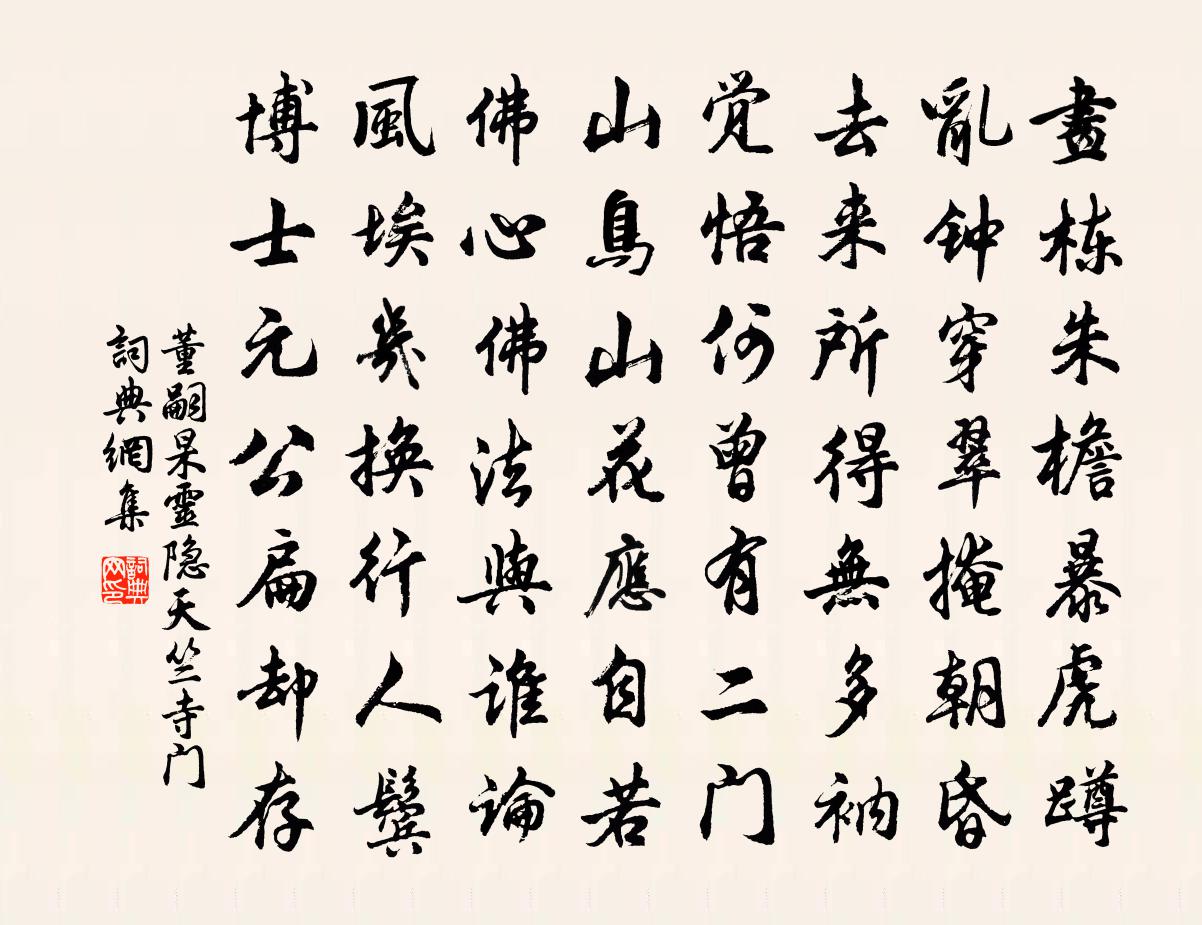 畫栋朱檐暴虎蹲
亂钟穿翠掩朝昏
去来所得無多衲
觉悟何曾有二门
山鳥山花應自若
佛心佛法與谁论
風埃幾换行人鬓
博士元公扁却存
董嗣杲靈隐天竺寺门
詞典網集
詞典网印